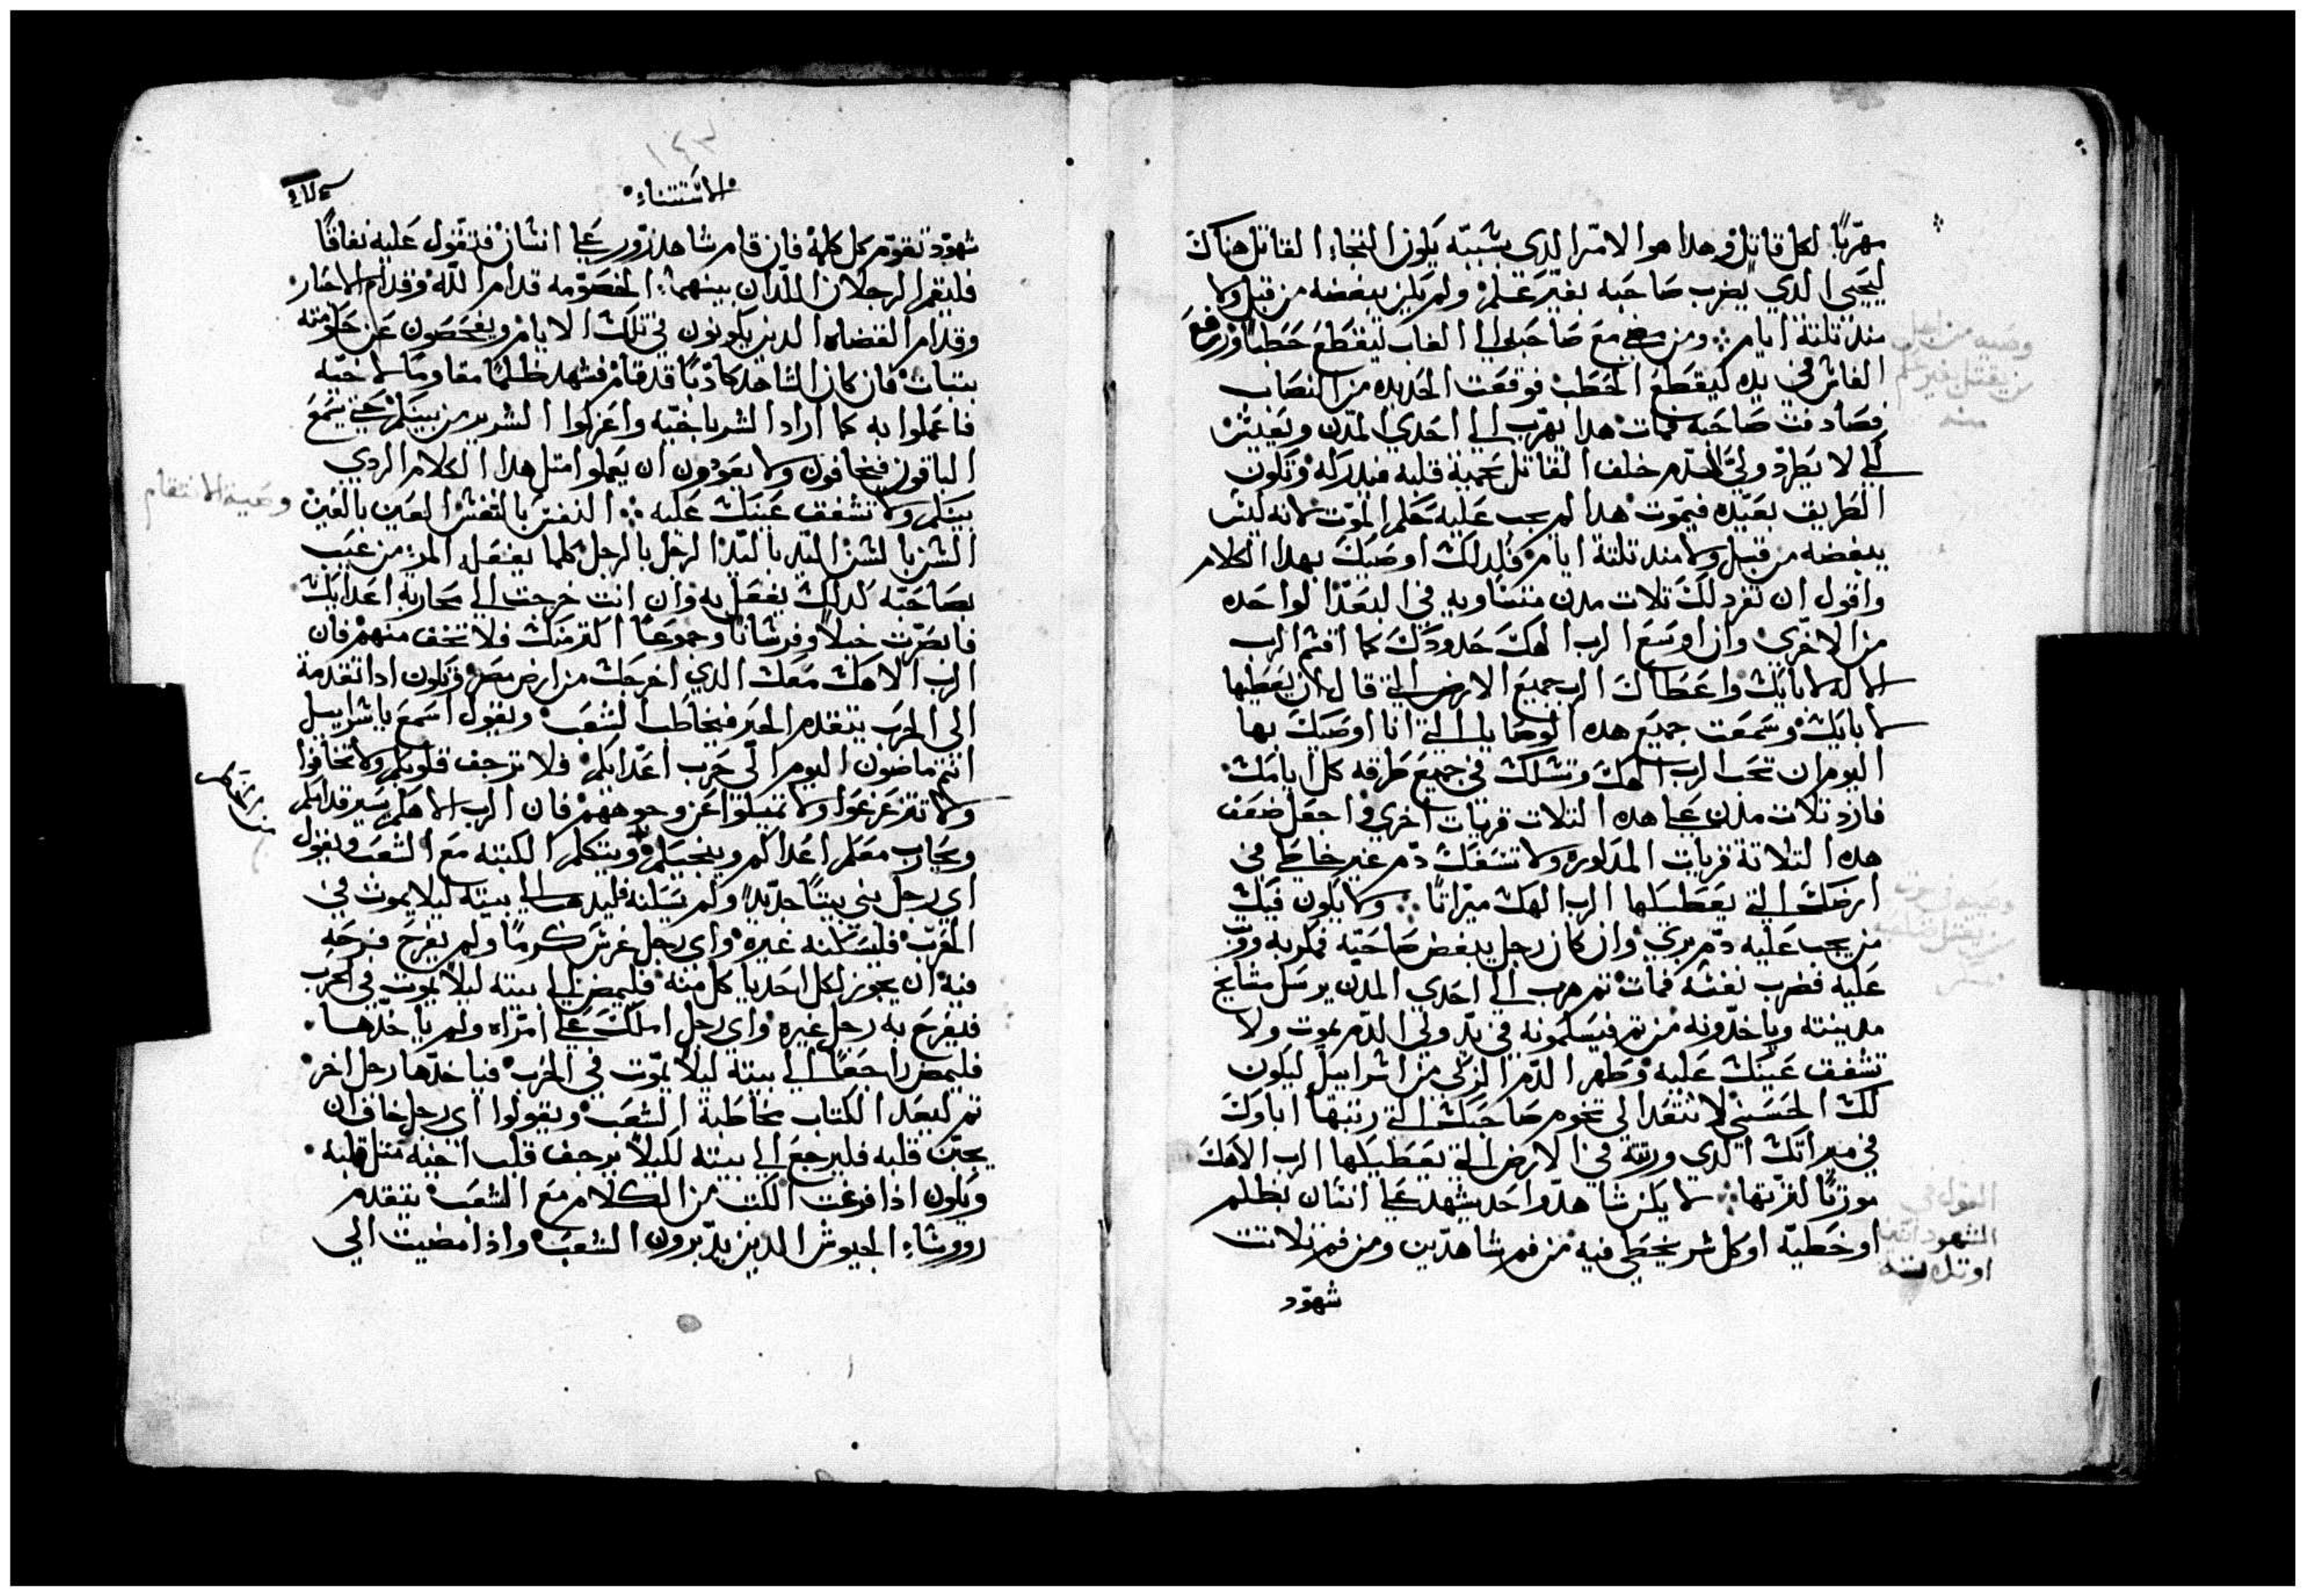 مهربًا لكل قاتل وهدا هو الامر الدي بسببه يكون التجاء القاتل هناك
ليحيى الدي يضرب صاحبه بغير علم ولم يكن يبغضه من قبل ولا
مند تلتة ايام ومن مضى مع صاحبه الى الغاب ليقطع حطبًا ورفع
الفاس في يده ليقطع الحطب فوقعت الحديده من النصاب
فصادفت صاحبه فمات هدا يهرب الى احدي المدن ويعيش
لكي لا يطرد ولي الدم خلف القاتل بحمية قلبه فيدركه وتكون
الطريق بعيده فيموت هدا لم يجب عليه حكم الموت لانه ليس
يبغضه من قبل ولا مند تلتة ايام فلدلك اوصيك بهدا الكلام
واقول ان تفرد لك تلات مدن متساويه في البعد الواحده
من الاخرى وان اوسع الرب الهك حدودك كما اقسم الرب
الاله لابايك واعطاك الرب جميع الارض التي قال ان يعطيها
لابايك وسمعت جميع هده الوصايا التي انا اوصيك بها
اليوم ان تحب الرب الهك وتسلك في جميع طرقه كل ايامك
فازد تلات مدن على هده التلات قريات اخري واجعل ضعف
هده التلاتة قريات المدكوره ولا تسفك دم غير خاطي في
ارضك التي يعطيكها الرب الهك ميراتًا ولا يكون فيك
من يجب عليه دم بري وان كان رجل يبغض صاحبه فمكر به ووتب
عليه فضرب نفسه فمات تم هرب الى احدي المدن يرسل مشايخ
مدينته وياخدونه من تم فيسلمونه في يد ولي الدم يموت ولا
تشفق عينك عليه وطهر الدم الزكي من اسراييل ليكون
لك الحسنى لا تتعد الى تخوم صاحبك التي رتبها اباوك
في ميراتك الدي ورتته في الارض التي يعطيكها الرب الاهك
مورتًا لترتها لا يكن شاهد واحد يشهد على انسان بظلم
او خطية او كل شر يخطي فيه من فم شاهدين ومن فم تلاتت
شهود
وصيه من اجل
من يقتل بغير علم
منه
وصيه في موت
من يقتل صاحبه
القول في
الشهود اتنين
او تلاتة
١٤٣
الاستتناء
شهود تقوم كل كلمة فان قام شاهد زور على انسان فتقول عليه نفاقًا
فليقم الرجلان اللدان بينهما الخصومه قدام الله وقدام الاحبار
وقدام القضاه الدين يكونون في تلك الايام ويفحصون عن حكومته
بتبات فان كان الشاهد كادبًا قد قام فشهد ظلمًا مقاومًا لاخيه
فاعملوا به كما اراد الشر باخيه واعزلوا الشرير من بينكم حتى يسمع
الباقون فيخافون ولا يعودون ان يعملوا متل هدا الكلام الردي
بينكم ولا تشفق عينك عليه النفس بالنفس العين بالعين
السن بالسن اليد باليد الرجل بالرجل كلما يفعل المر من عيب
بصاحبه كدلك يفعل به وان انت خرجت الى محاربة اعدايك
فابصرت خيلًا وفرسانًا وجموعًا اكتر منك فلا تخف منهم فان
الرب الاهك معك الدي اخرجك من ارض مصر وتكون ادا تقدمة
الى الحرب يتقدم الحبر فيخاطب الشعب ويقول اسمع يا اسراييل
انتم ماضون اليوم الى حرب اعدايكم فلا ترجف قلوبكم ولا تخافوا
ولا تتزعزعوا ولا تميلوا عن وجوههم فان الرب الاهكم يسير قدامكم
ويحارب معكم اعداكم وينجيكم ويتكلم الكتبة مع الشعب ويقول
اي رجل بنى بيتًا جديدًا ولم يسكنه فليدهب الى بيته ليلا يموت في
الحرب فليسكنه غيره واي رجل غرس كرمًا ولم يفرح فرحه
فيه ان يجوز لكل احد ياكل منه فليمض الى بيته ليلا يموت في الحرب
فيفرح به رجل غيره واي رجل املك على امراه ولم ياخدها
فليمض راجعًا الى بيته ليلا يموت في الحرب فياخدها رجل اخر
تم ليعد الكتاب مخاطبة الشعب ويقولوا اي رجل خاف ان
يجبن قلبه فليرجع الى بيته لكيلا يرجف قلب اخيه متل قلبه
ويكون اذا فرغت الكتبه من الكلام مع الشعب يتقدم
رووساء الجيوش الدين يدبرون الشعب واذا مضيت الى
وصية الانتقام